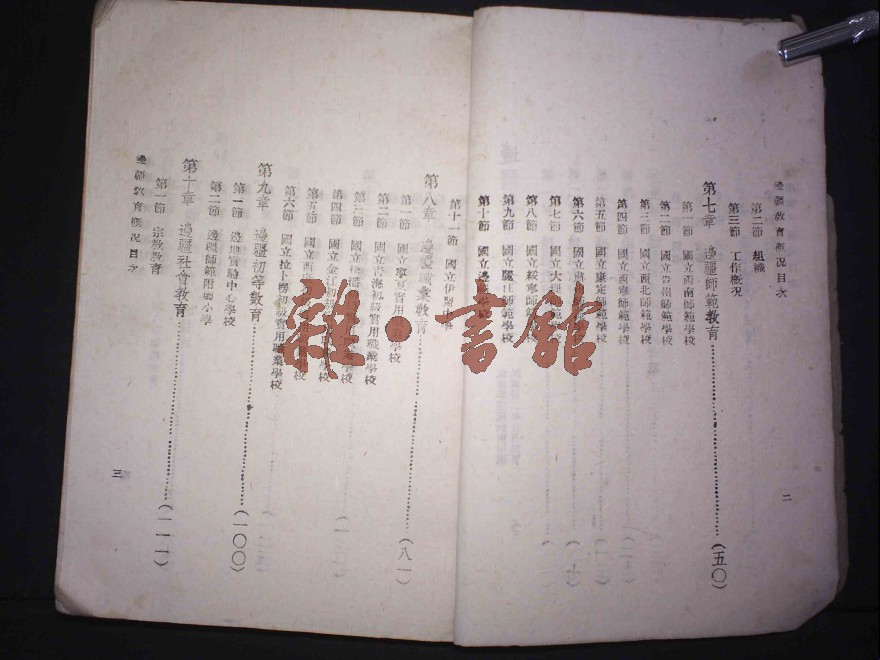 邊疆教育概況目次
第二節 組織
第三節 工作概況
第七章 邊疆師範教育(五〇)
第一節 國立西南師範學校
第二節 國立貴州師範學校
第三節 國立西北師範學校
第四節 國立西寧師範學校
第五節 國立康定師範學校
第六節 國立 師範學校
第七節 國立大理師範學校
第八節 國立綏寧師範學校
第九節 國立麗江師範學校
第十節 國立邊 學校
第十一節 國立伊盟
二
第八章 邊疆職業教育(八一)
第一節 國立寧夏實用 學校
第二節 國立青海初級實用職業學校
第三節 國立松潘 學校
第四節 國立金江初級 學校
第五節 國立西 校
第六節 國立拉卜楞初級實用職業學校
第九章 邊疆初等教育(一〇〇)
第一節 邊地實驗中心學校
第二節 邊疆師範附屬小學
第十章 邊疆社會教育(一一一)
第一節 宗教教育
邊疆教育概況目次
三
雜·書館